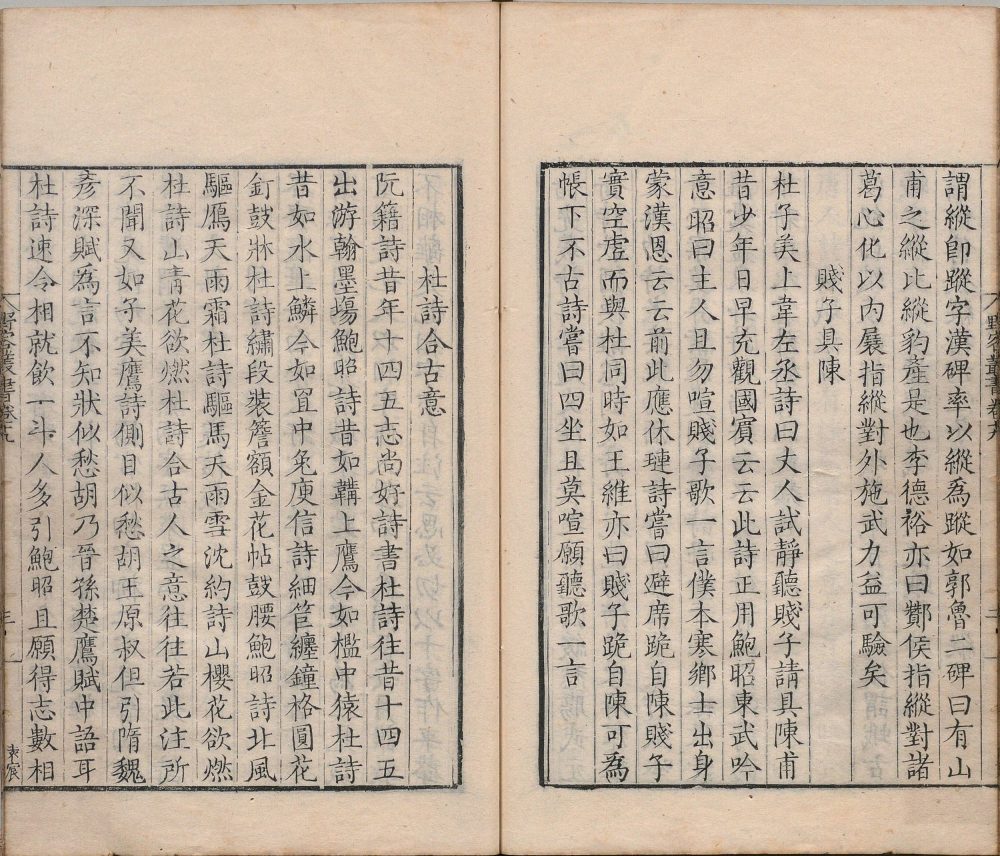 謂縱卽蹤字漢碑率以縱爲蹤如郭魯二碑曰有山
甫之縱比縱豹產是也李德裕亦曰酇侯指縱對諸
葛心化以內屐指縱對外施武力益可驗矣
賤子具陳
杜子美上韋左丞詩曰丈人試靜聽賤子請具陳甫
昔少年日早充觀國賓云云此詩正用鮑昭東武吟
意昭曰主人且勿喧賤子歌一言僕本寒鄉士出身
蒙漢恩云云前此應休璉詩嘗曰避席跪自陳賤子
實空虛而與杜同時如王維亦曰賤子跪自陳可爲
帳下不古詩嘗曰四坐且莫喧願聽歌一言
杜詩合古意
阮籍詩昔年十四五志尚好詩書杜詩往昔十四五
出游翰墨塲鮑昭詩昔如韝上鷹今如檻中猿杜詩
昔如水上鱗今如罝中兔庾信詩細管纏鐘格圓花
釘鼓牀杜詩繡段裝簷額金花帖鼓腰鮑昭詩北風
驅鴈天雨霜杜詩驅馬天雨雪沈約詩山櫻花欲燃
杜詩山青花欲燃杜詩合古人之意往往若此注所
不聞又如子美鷹詩側目似愁胡王原叔但引隋魏
彥深賦爲言不知狀似愁胡乃晉孫楚鷹賦中語耳
杜詩速令相就飲一斗人多引鮑昭且願得志數相
野客叢書卷九